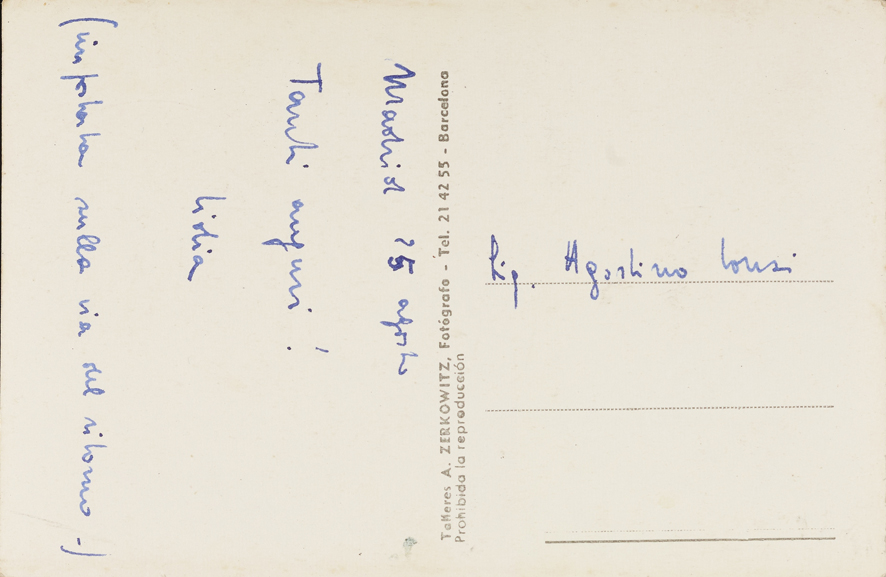 Madrid 25 agosto
Tanti auguri!
Lidia
(impostata sulla via del ritorno -)
Talleres A. ZERKOWITZ, Fotógrafo - Tel. 21 42 55 - Barcelona
Prohibida la reproducción
Sig. Agostino